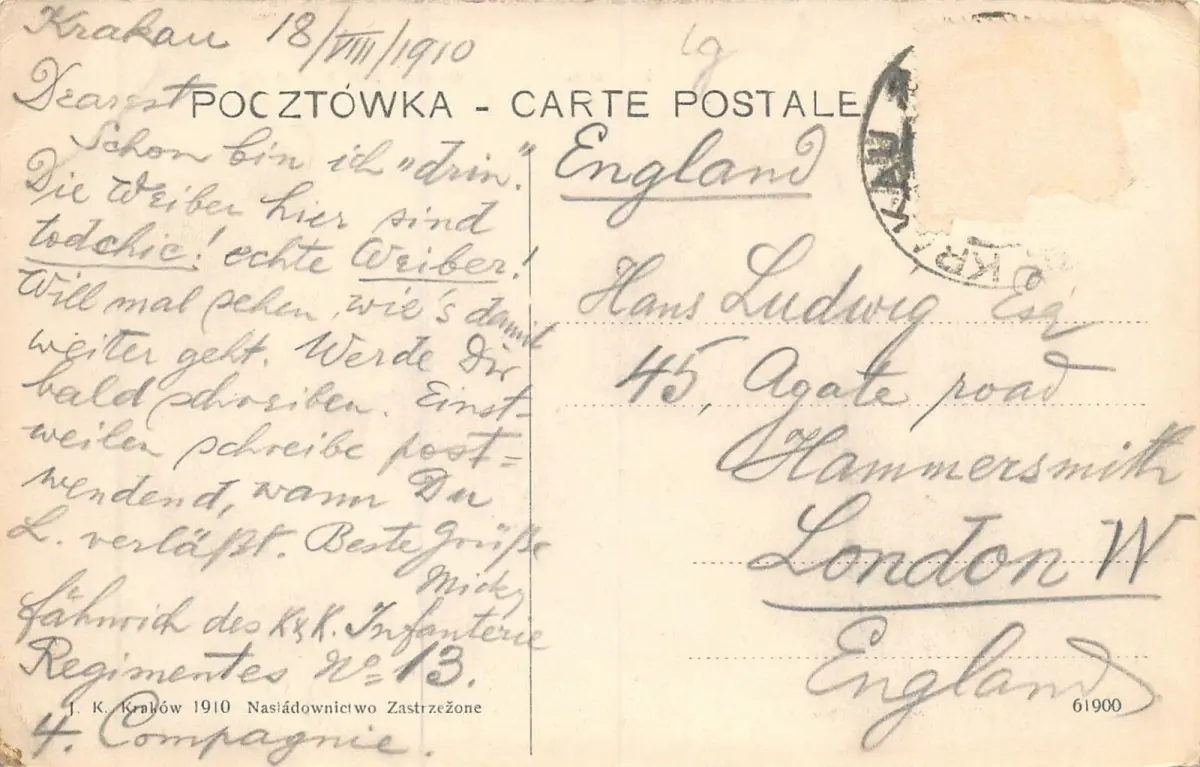 Krakau 18/VIII/1910
Dearest
POCZTÓWKA - CARTE POSTALE
Schon bin ich „drin."
Die Weiber hier sind
todchic! echte Weiber!
Will mal sehen, wie's damit
weiter geht. Werde Dir
bald schreiben. Einst-
weilen schreibe post=
wendend, wann Du
L. verläßt. Beste Grüße
Micky
Fähnrich des K.k. Infanterie
Regimentes No 13.
4. Compagnie.
J. K. Kraków 1910 Nasiádownictwo Zastrzeżone
England
Hans Ludwig Esq
45, Agate road
Hammersmith
London W
England
61900
KRAKAU